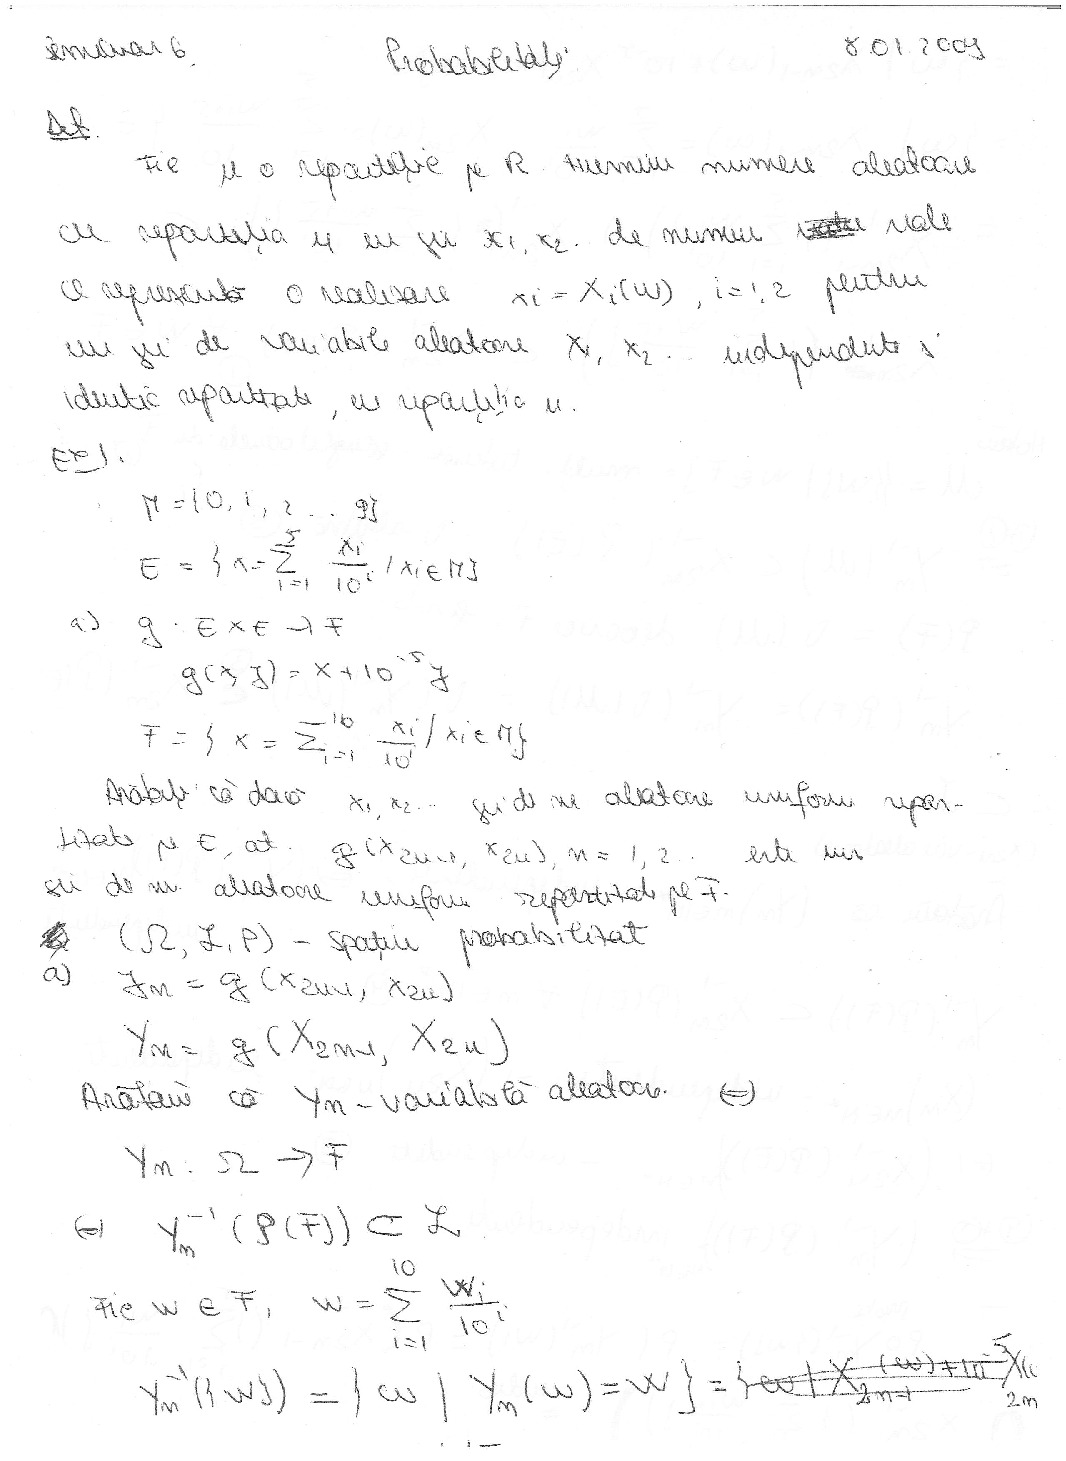 Seminar 6. Probabilități 8.01.2009
Def.
Fie μ o repartiție pe R. Numim numere aleatoare
cu repartiția μ un șir x₁, x₂.. de numere reale
ce reprezintă o realizare xi = Xi(ω), i=1,2 pentru
un șir de variabile aleatoare X₁, X₂ .. independente și
identic repartizate, cu repartiția μ.
Ex 1.
M = {0, 1, 2 .. 9}
E = { x = \sum_{i=1}^{5} \frac{xi}{10^i} / xi ∈ M}
a) g : E × E → F
g(x, y) = x + 10^{-5} y
F = { x = \sum_{i=1}^{10} \frac{xi}{10^i} / xi ∈ M}
Arătați că dacă x₁, x₂ .. șir de nr aleatoare uniform repar-
tizate pe E, at. g(x_{2n-1}, x_{2n}), n = 1, 2.. este un
șir de nr. aleatoare uniform repartizate pe F.
(Ω, 𝓛, P) – spațiu probabilizat
a) yn = g(x_{2n-1}, x_{2n})
Yn = g(X_{2n-1}, X_{2n})
Arătăm că Yn – variabilă aleatoare. (=)
Yn : Ω → F
(=) Yn^{-1} (P(F)) ⊂ 𝓛
Fie w ∈ F, w = \sum_{i=1}^{10} \frac{wi}{10^i}
Yn^{-1}({w}) = { ω | Yn(ω) = w } = { ω | X_{2n-1}(ω) + 10^{-5} X_{2n}